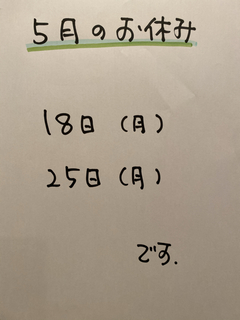 5月のお休み
18日（月）
25日（月）
です.